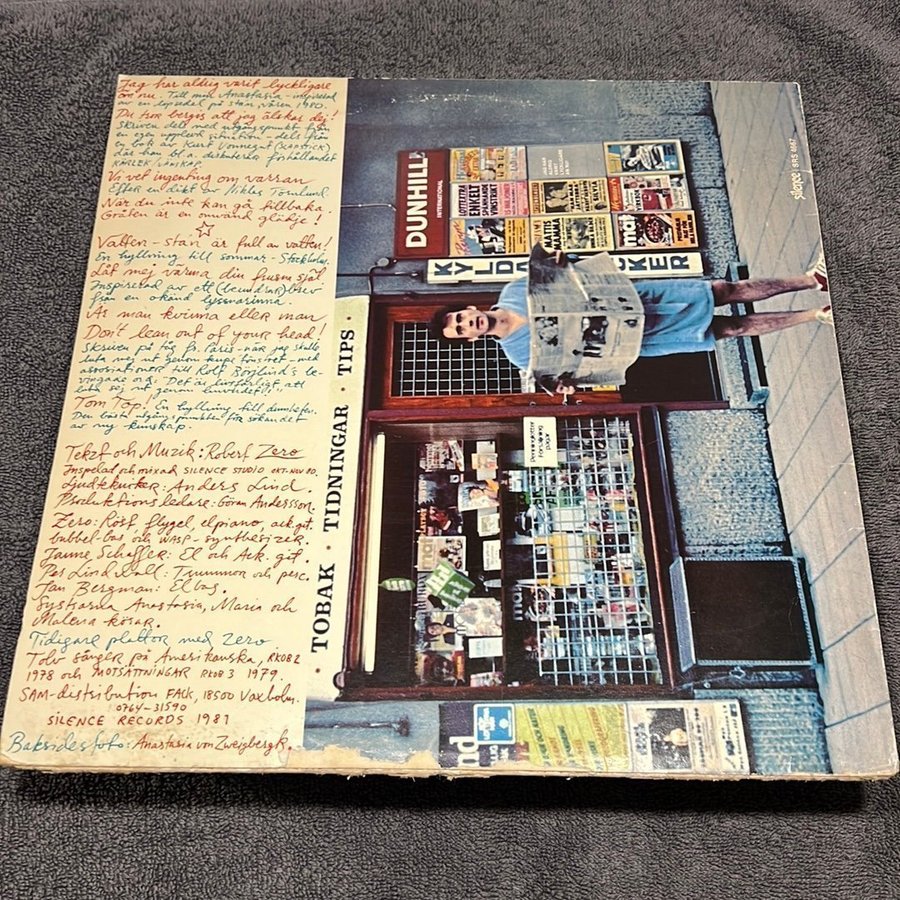 Jag har aldrig varit lyckligare
än nu. Till min Anastasia - inspirerad
av en löpsedel på stan våren 1980.
Du tror bergis att jag älskar dej!
Skriven dels med utgångspunkt från
en egen upplevd situation - dels från
en bok av Kurt Vonnegut (SLAPSTICK)
där han bl.a. diskuterar förhållandet
KÄRLEK / VÄNSKAP
Vi vet ingenting om varran
Efter en dikt av Niklas Törnlund
När du inte kan gå tillbaka.
Gråten är en omvänd glädje!
Vatten-stan är full av vatten!
En hyllning till sommar-Stockholm.
Låt mej värma din frusna själ
Inspirerad av ett (beundrar)brev
från en okänd lyssnarinna.
Är man kvinna eller man
Don't lean out of your head!
Skriven på tåg fr. Paris - när jag skulle
luta mej ut genom kupéfönstret - med
associationer till Rolf Börjlinds be-
vingade ord: "Det är livsfarligt att
luta sej ut genom huvudet!"
Tom Top! En hyllning till dumheten.
Den bästa utgångspunkten för sökandet
av ny kunskap.
Text och Muzik: Robert Zero
Inspelad och mixad SILENCE STUDIO OKT-NOV 80.
Ljudtekniker: Anders Lind.
Produktionsledare: Göran Andersson.
Zero: Röst, flygel, elpiano, ack git,
bubbel-bas och WASP-synthesizer.
Janne Schaffer: El och Ack. git.
Per Lindvall: Trummor och perc.
Jan Bergman: Elbas.
Systrarna Anastasia, Maria och
Malena körar.
Tidigare plattor med Zero
Tolv sånger på Amerikanska, RKOB 2
1978 och MOTSÄTTNINGAR RKOB 3 1979.
SAM-distribution FACK, 18500 Vaxholm.
0764-31590
SILENCE RECORDS 1981
Baksidesfoto: Anastasia von Zweigbergk.
• TOBAK • TIDNINGAR • TIPS •
DUNHILL
INTERNATIONAL
ENKELT
MATTIA
KYLDA
CKER
Penninglotter
Försäljning
pågår
silence SRS 4667